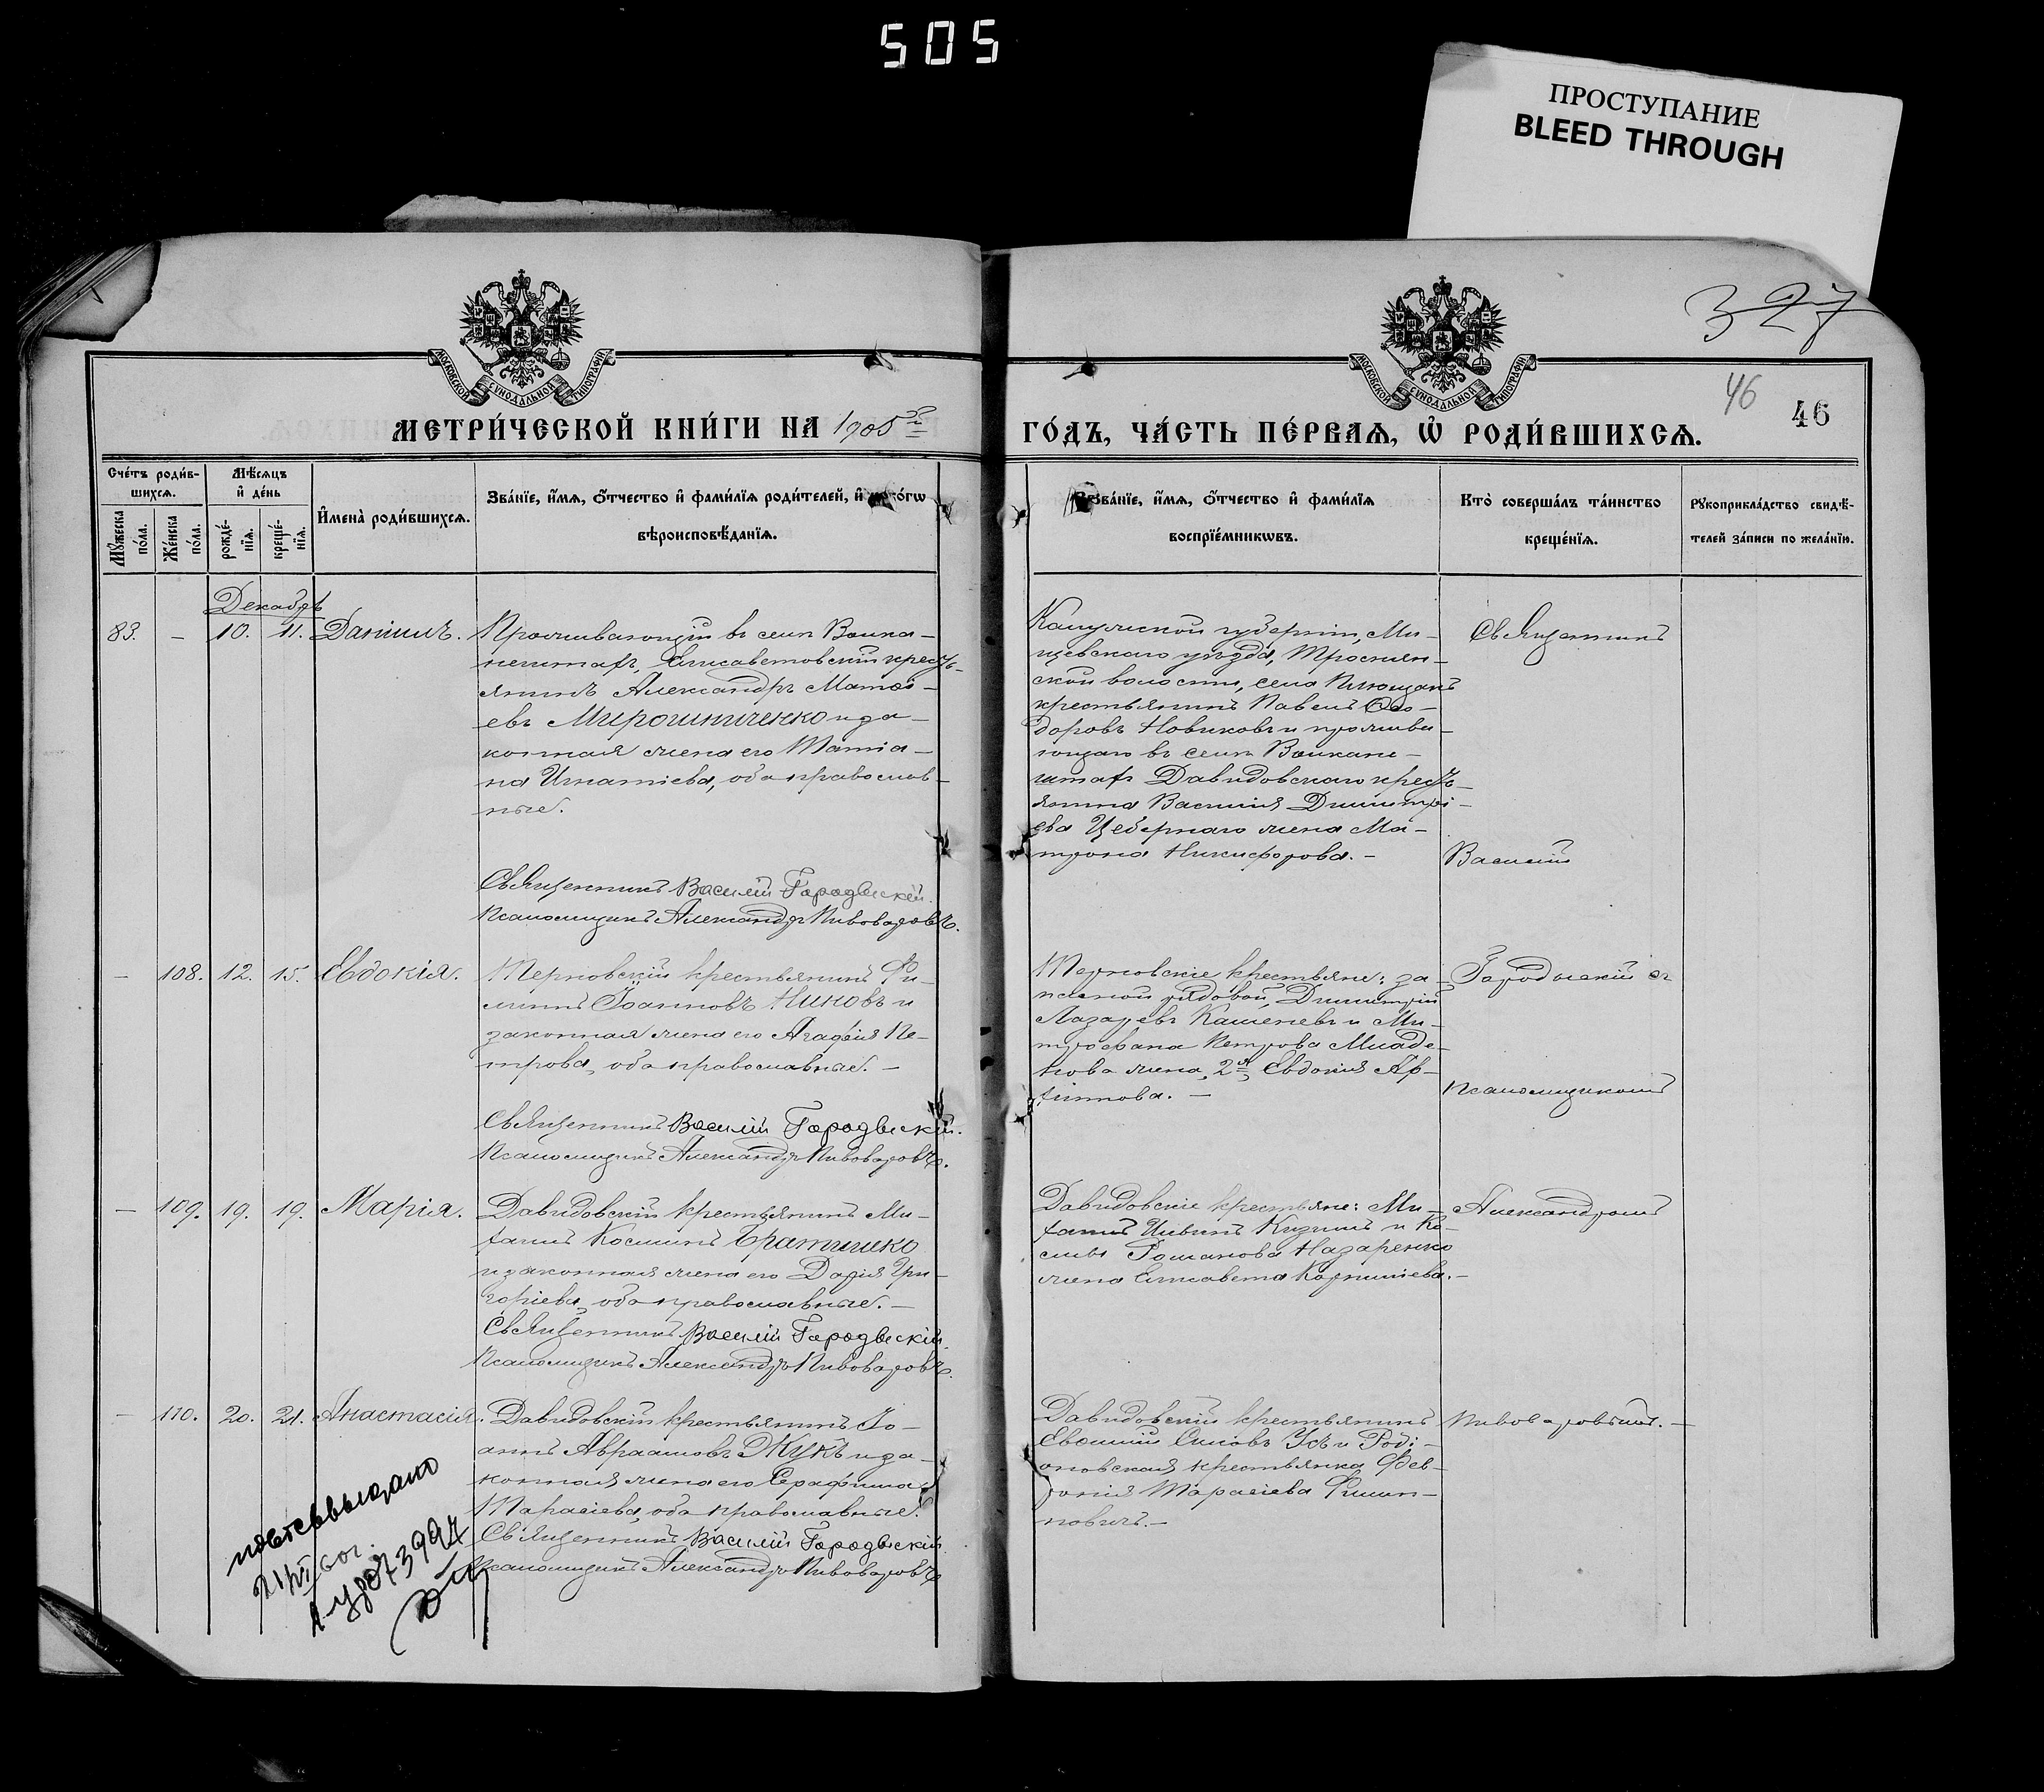 505
ПРОСТУПАНИЕ
BLEED THROUGH
327
46
46
МОСКОВСКОЙ СѴНОДАЛЬНОЙ ТИПОГРАФІИ
МОСКОВСКОЙ СѴНОДАЛЬНОЙ ТИПОГРАФІИ
МЕТРИ́ЧЕСКОЙ КНИ́ГИ НА 1905й
ГО́ДЪ, ЧА́СТЬ ПЕ́РВАѦ, Ѡ РОДИ́ВШИХСѦ.
Сче́тъ роди́в-
шихсѧ.
Мꙋжеска по́ла.
Же́нска по́ла.
Мѣ́сѧцъ
и҆ де́нь
рожде́-
нїѧ.
креще́-
нїѧ.
И҆мена̀ роди́вшихсѧ.
Зва́нїе, и҆́мѧ, ѻ҆́тчество и҆ фами́лїѧ роди́телей, и҆
вѣроисповѣ́данїѧ.
Зва́нїе, и҆́мѧ, ѻ҆́тчество и҆ фами́лїѧ
воспрїе́мникѡвъ.
Кто̀ соверша́лъ та́инство
креще́нїѧ.
Рꙋкоприкла́дство свидѣ́-
телей за́писи по жела́нїю.
Декабрь
83. – 10. 11. Даніилъ.
Проживающій въ селѣ Волка-
нештахъ, Елисаветовскій кресть-
янинъ Александръ Матѳі-
евъ Мирошниченко и за-
конная жена его Татіа-
на Игнатіева, оба православ-
ные.
Священникъ Василій Городыскій.
Псаломщикъ Александръ Пивоваровъ.
Калужской губерніи, Ме-
щевскаго уѣзда,
ской волости, села
крестьянинъ Павелъ Ѳео-
доровъ Новиковъ и прожива-
ющаго въ селѣ Волкане-
штахъ Давидовскаго кресть-
янина Василія Димитрі-
ева Цебернаго жена Ма-
трона Никифорова. –
Священникъ
Василій
– 108. 12. 15. Евдокія.
Терновскій крестьянинъ Фи-
липпъ Іоанновъ Ниновъ и
законная жена его Агаѳія Пе-
трова, оба православные. –
Священникъ Василій Городыскій.
Псаломщикъ Александръ Пивоваровъ.
Терновскіе крестьяне: за-
пасной рядовой Димитрій
Лазаревъ Кашеневъ и Ми-
трофана Петрова Младе-
нова жена, 2я, Евдокія Ар-
хиппова. –
Городыскій съ
псаломщикомъ
– 109. 19. 19. Марія.
Давидовскій крестьянинъ Ми-
хаилъ Косминъ Братишко
и законная жена его Дарія Гри-
горіева, оба православные. –
Священникъ Василій Городыскій.
Псаломщикъ Александръ Пивоваровъ.
Давидовскіе крестьяне: Ми-
хаилъ Кизимъ и Ко-
смы Романова Назаренко
жена Елисавета Корниліева. –
Александромъ
– 110. 20. 21. Анастасія.
Давидовскій крестьянинъ Іо-
аннъ Авраамовъ Жукъ и за-
конная жена его Серафима
Тарасіева, оба православные.
Священникъ Василій Городыскій.
Псаломщикъ Александръ Пивоваровъ
Давидовскій крестьянинъ
Евѳимій Усъ и Роді-
оновская крестьянка Фев-
ронія Тарасіева Филип-
повичъ. –
Пивоваровымъ. –